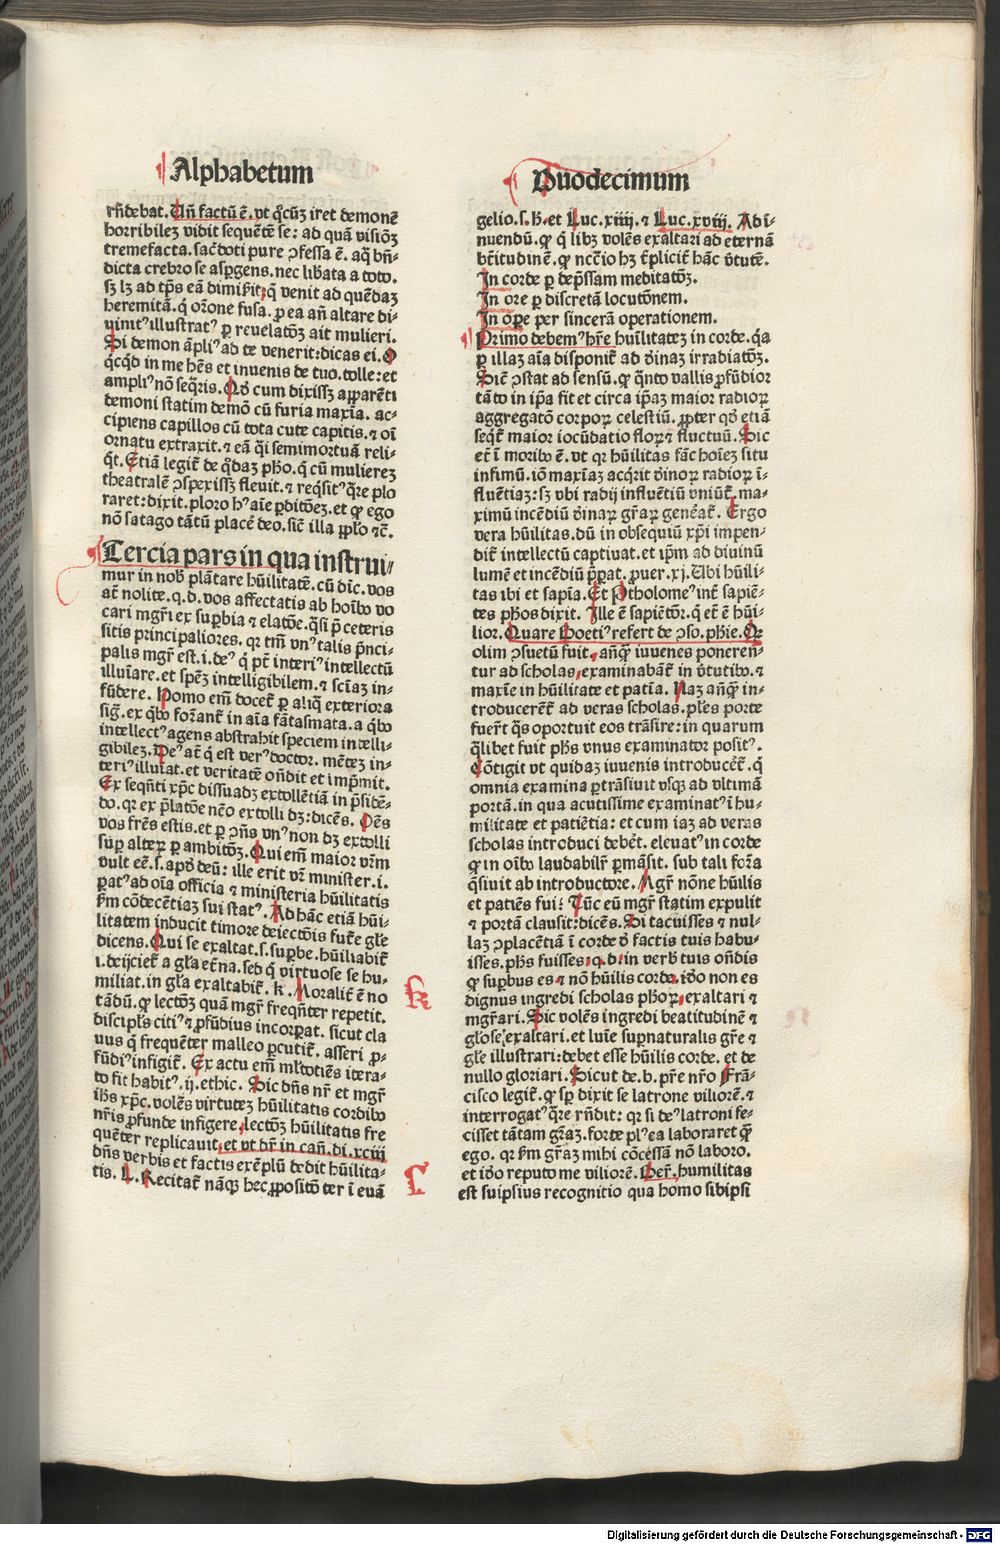 Alphabetum
Duodecimum
rñdebat. Uñ factũ ẽ. vt q̃cũꝫ iret demonẽ
horribilez vidit sequẽtẽ se: ad quã visiõꝫ
tremefacta. sac̃doti pure ꝯfessa ẽ. aq̃ bñ⸗
dicta crebro se asꝑgens. nec lib̃ata a toto.
sꝫ lꝫ ad tp̃s eã dimiſit; q̃ venit ad quẽdaꝫ
heremitã. q̃ orõne fusa. ꝑ ea añ altare di⸗
uinitꝰ illustratꝰ ꝑ reuelatõꝫ ait mulieri.
Si demon ãpliꝰ ad te venerit: dicas ei. O
q̃cq̃d in me hẽs et inuenis de tuo. tolle: et
ampliꝰ nõ seq̃ris. Qđ cum dixissꝫ apparẽti
demoni statim demõ cũ furia maxĩa. ac⸗
cipiens capillos cũ tota cute capitis. ⁊ oĩ
ornatu extraxit. ⁊ eã q̃i semimortuã reli⸗
q̃t. Etiã legit̃ de q̃daꝫ pħo. q̃ cũ mulierez
theatralẽ ꝯspexissꝫ fleuit. ⁊ req̃sitꝰ q̃re plo
raret: dixit. ploro hꝰ aĩe ꝑditõeꝫ. et ꝙ ego
nõ satago tãtũ placẽ deo. sic̃ illa ꝓplo ⁊c̃.
Tercia pars in qua instrui⸗
mur in nob̃ plãtare hũilitatẽ. cũ dĩc. vos
at̃ nolite. q. d. vos affectatis ab hoĩbꝰ vo
cari mgr̃i ex sup̃bia ⁊ elatõe. q̃si p̃ ceteris
sitis principaliores. qr tm̃ vnꝰ talis p̃nci⸗
palis mgr̃ est. i. deꝰ q̃ pt̃ interiꝰ intellectũ
illuĩare. et spẽꝫ intelligibilem. ⁊ sciãꝫ in⸗
fũdere. Homo em̃ docet̃ ꝑ aliq̃ exteriora
sig̃. ex q̃bꝰ forãnt̃ in aĩa fãtasmata. a q̃bꝰ
intellectꝰ agens abstrahit speciem intelli⸗
gibilez. Deꝰ at̃ q̃ est verꝰ doctor. mẽteꝫ in⸗
teriꝰ illuĩat. et veritatẽ oñdit et imp̃mit.
Ex seqñti xp̃c dissuadꝫ extollẽtiã in p̃sidẽ⸗
do. qr ex p̃latõe nẽo extolli dꝫ: dicẽs. Oẽs
vos fr̃es estis. et ꝑ ꝯñs vnꝰ non dꝫ extolli
suꝑ alteꝝ ꝑ ambitõꝫ. Qui em̃ maior vr̃m
vult eẽ. s. apđ deũ: ille erit vr̃ minister. i.
ꝑatꝰ ad oĩa officia ⁊ ministeria hũilitatis
ẜm cõdecẽtiaꝫ sui statꝰ. Ad hãc etiã hũi⸗
litatem inducit timore deiectõis fut̃e gl̃e
dicens. Qui se exaltat. s. suꝑbe. hũiliabit̃
i. deijciet̃ a gl̃a et̃na. sed q̃ virtuose se hu⸗
miliat. in gl̃a exaltabit̃. k. Moralit̃ ẽ no
tãdũ. ꝙ lectõꝫ quã mgr̃ freqñter repetit.
discipľs citiꝰ ⁊ ꝓfũdius incorꝑat. sicut cla
uus q̃ frequẽter malleo ꝑcutit̃. asseri ꝓ⸗
fũdiꝰ infigit̃. Ex actu em̃ ml̃totiẽs itera⸗
to fit habitꝰ. ij. ethic. Sic dñs nr̃ et mgr̃
ih̃s xp̃c. volẽs virtutez hũilitatis cordibꝰ
nr̃is ꝓfunde infigere, lectõꝫ hũilitatis fre
quẽter replicauit, et vt dr̃ in cañ. di. xciij
dñs verbis et factis exẽplũ dedit hũilita⸗
tis. L. Recitat̃ nãqꝫ hec ꝓpositõ ter ĩ euã
k
L
gelio. s. h̃. et Luc. xiiij. ⁊ Luc. xviij. Ad ĩ⸗
nuendũ. ꝙ q̃ libꝫ volẽs exaltari ad eternã
bt̃itudinẽ. ꝙ nccĩo hꝫ t̃plicit̃ hãc v̓tutẽ.
In corde ꝑ dep̃ssam meditatõꝫ.
In ore ꝑ discretã locutõnem.
In oꝑe per sincerã operationem.
Primo debemꝰ hr̃e hũilitatez in corde. q̃a
ꝑ illaꝫ aĩa disponit̃ ad đinaꝫ irradiatõꝫ.
Sic̃ ꝯstat ad sensũ. ꝙ q̃nto vallis ꝓfũdior
tãto in ip̃a fit et circa ip̃aꝫ maior radioꝝ
aggregatõ corpoꝝ celestiũ. ꝓpter qđ etiã
seq̃t̃ maior iocũdatio floꝝ ⁊ fluctuũ. Sic
et̃ ĩ moribꝰ ẽ. vt qr hũilitas fac̃ hoĩeꝫ situ
infimũ. iõ maxĩaꝫ acq̃rit đinoꝝ radioꝝ ĩ⸗
fluẽtiaꝫ: sꝫ vbi radij influẽtiũ vniũt̃. ma⸗
ximũ incẽdiũ đinaꝝ gr̃aꝝ gen̓at̃. Ergo
vera hũilitas. dũ in obsequiũ xp̃i impen⸗
dit̃ intellectũ captiuat. et ip̃m ad diuinũ
lumẽ et incẽdiũ p̃ꝑat. ꝓuer. xj. Ubi hũili⸗
tas ibi et sapĩa. Et Ptholomeꝰ int̃ sapiẽ⸗
tes pħos dixit. Ille ẽ sapiẽtõr. q̃ et̃ ẽ hũi⸗
lior. Quare Boetiꝰ refert de ꝯso. pħie. Qꝛ
olim ꝯsuetũ fuit, añq̃ꝫ iuuenes poneren⸗
tur ad scholas, examinabãt̃ in v̓tutibꝰ. ⁊
maxĩe in hũilitate et patĩa. Naꝫ añq̃ꝫ in⸗
troducerẽt̃ ad veras scholas. pl̃es porte
fuer̃t q̃s oportuit eos trãsire: in quarum
q̃libet fuit pħs vnus examinator positꝰ.
Cõtigit vt quidaꝫ iuuenis introducẽt̃. q̃
omnia examina ꝑtrãsiuit vsqꝫ ad vltimã
portã. in qua acutissime examinatꝰ ĩ hu⸗
militate et patiẽtia: et cum iaꝫ ad veras
scholas introduci deb̓et. eleuatꝰ in corde
ꝙ in oĩbꝰ laudabilr̃ ꝑmãsit. sub tali forã
q̃siuit ab introductore. Mgr̃ nõne hũilis
et patiẽs fui? Tũc eũ mgr̃ statim expulit
⁊ portã clausit: dicẽs. Si tacuisses ⁊ nul⸗
laꝫ ꝯplacẽtiã ĩ corde đ factis tuis habu⸗
isses. pħs fuisses. q. d. in verb̃ tuis oñdis
ꝙ suꝑbus es ⁊ nõ hũilis corde, iđo non es
dignus ingredi scholas pħoꝝ, exaltari ⁊
mgr̃ari. Sic volẽs ingredi beatitudinẽ ⁊
gl̃ose, exaltari. et luĩe supnaturalis gr̃e ⁊
gl̃e illustrari: debet esse hũilis corde. et de
nullo gloriari. Sicut de. b. pr̃e nr̃o Frã⸗
cisco legit̃. ꝙ sꝑ dixit se latrone viliorẽ. ⁊
interrogatꝰ q̃re rñdit: qr si deꝰ latroni fe⸗
cisset tãtam gr̃aꝫ. forte plꝰ ea laboraret q̃ꝫ
ego. qr ẜm gr̃aꝫ mihi cõcessã nõ laboro.
et iđo reputo me viliorẽ. Ber̃. humilitas
est suipsius recognitio qua homo sibipsi
Digitalisierung gefördert durch die Deutsche Forschungsgemeinschaft - DFG